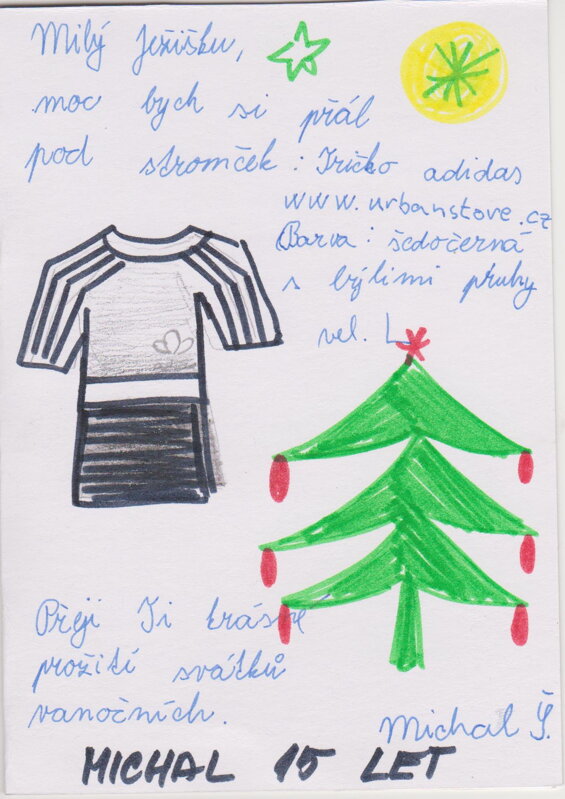 Milý Ježíšku,
moc bych si přál
pod stromček: Tričko adidas
www.urbanstore.cz
Barva: šedočerná
s býlimi pruhy
vel. L
Přeji Ti krásné
prožití svátků
vanočních.
Michal Š.
MICHAL 15 LET